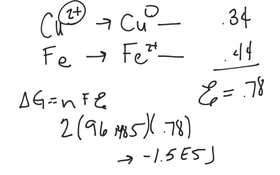 Cu²⁺ → Cu⁰ — .34
Fe → Fe²⁺ — .44
ℰ = .78
ΔG = n F ℰ
2(96,485)(.78)
→ -1.5E5J